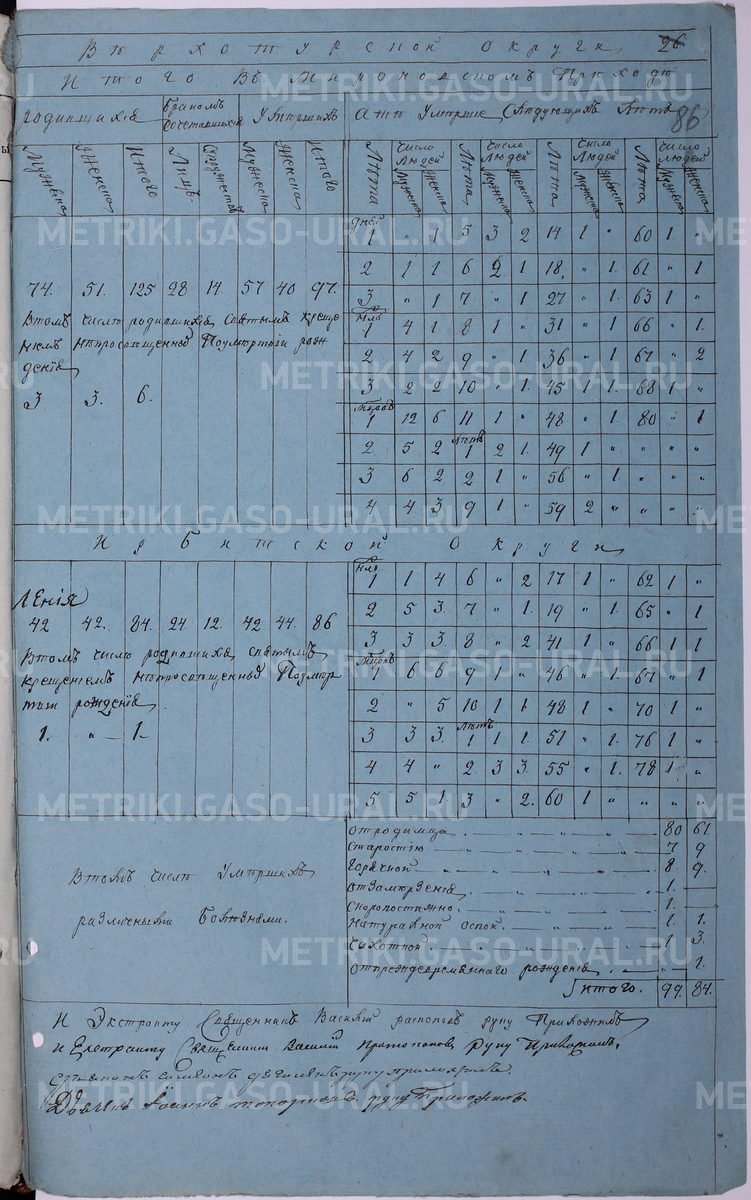 Верхотурской округи 26
Итого въ Мироновскомъ Приходѣ
86
родившихся бракомъ сочетавшихся умершихъ Лѣта умершие слѣдующихъ лѣтъ
Мужеска Женска Итого Лицъ Мужеска Женска Итого Лѣта число людей Мужеска Женска Лѣта число людей Мужеска Женска Лѣта число людей Мужеска Женска Лѣта число людей Мужеска Женска
дней
1 " 1 5 3 2 14 1 " 60 1 "
2 1 1 6 2 1 18 " 1 61 " 1
74 51 125 28 14 57 40 97 3 " 1 7 " 1 27 " 1 63 1 "
Втомъ числѣ родившихся святымъ креще
1 4 1 8 1 " 31 " 1 66 " 1
нiемъ непросвященные помертвы рож
2 4 2 9 " 1 36 " 1 67 " 2
денiя
3 2 2 10 " 1 45 1 1 68 1 "
3 3 6
1 12 6 11 1 " 48 " 1 80 " 1
2 5 2 лѣтъ 1 2 1 49 1 " " " "
3 6 2 2 1 " 56 " 1 " " "
4 4 3 9 1 " 59 2 " " " "
Ирбитской Округи
1 1 4 6 " 2 17 1 " 62 1 "
Ленiя
2 5 3 7 " 1 19 " 1 65 " 1
42 42 84 24 12 42 44 86 3 3 3 8 " 2 41 1 " 66 1 1
Втомъ числѣ родившихся святымъ
1 6 6 9 1 " 46 " 1 67 " 1
крещенiемъ непросвященные помер
2 " 5 10 1 1 48 1 " 70 1 "
рожденiя
1 " 1
3 3 3 лѣтъ 1 1 1 51 " 1 76 1 "
4 4 " 2 3 3 55 " 1 78 1 "
5 5 1 3 " 2 60 1 " " " "
Втомъ числѣ умершихъ
различными болезнами
отродимца 80 61
старостiю 7 9
горячкой 8 9
1 —
скоропостижно 1 —
натуралной оспой 1 1
чахоткой 1 3
отпреждевременнаго рожденiя — 1
Итого 99 84
К Экстракту Священникъ Василий руку Приложилъ
К Екстракту Священникъ Василий Протопоповъ Руку Приложилъ
руку приложилъ
Iоаннъ Топорковъ руку Приложилъ
METRIKI.GASO-URAL.RU